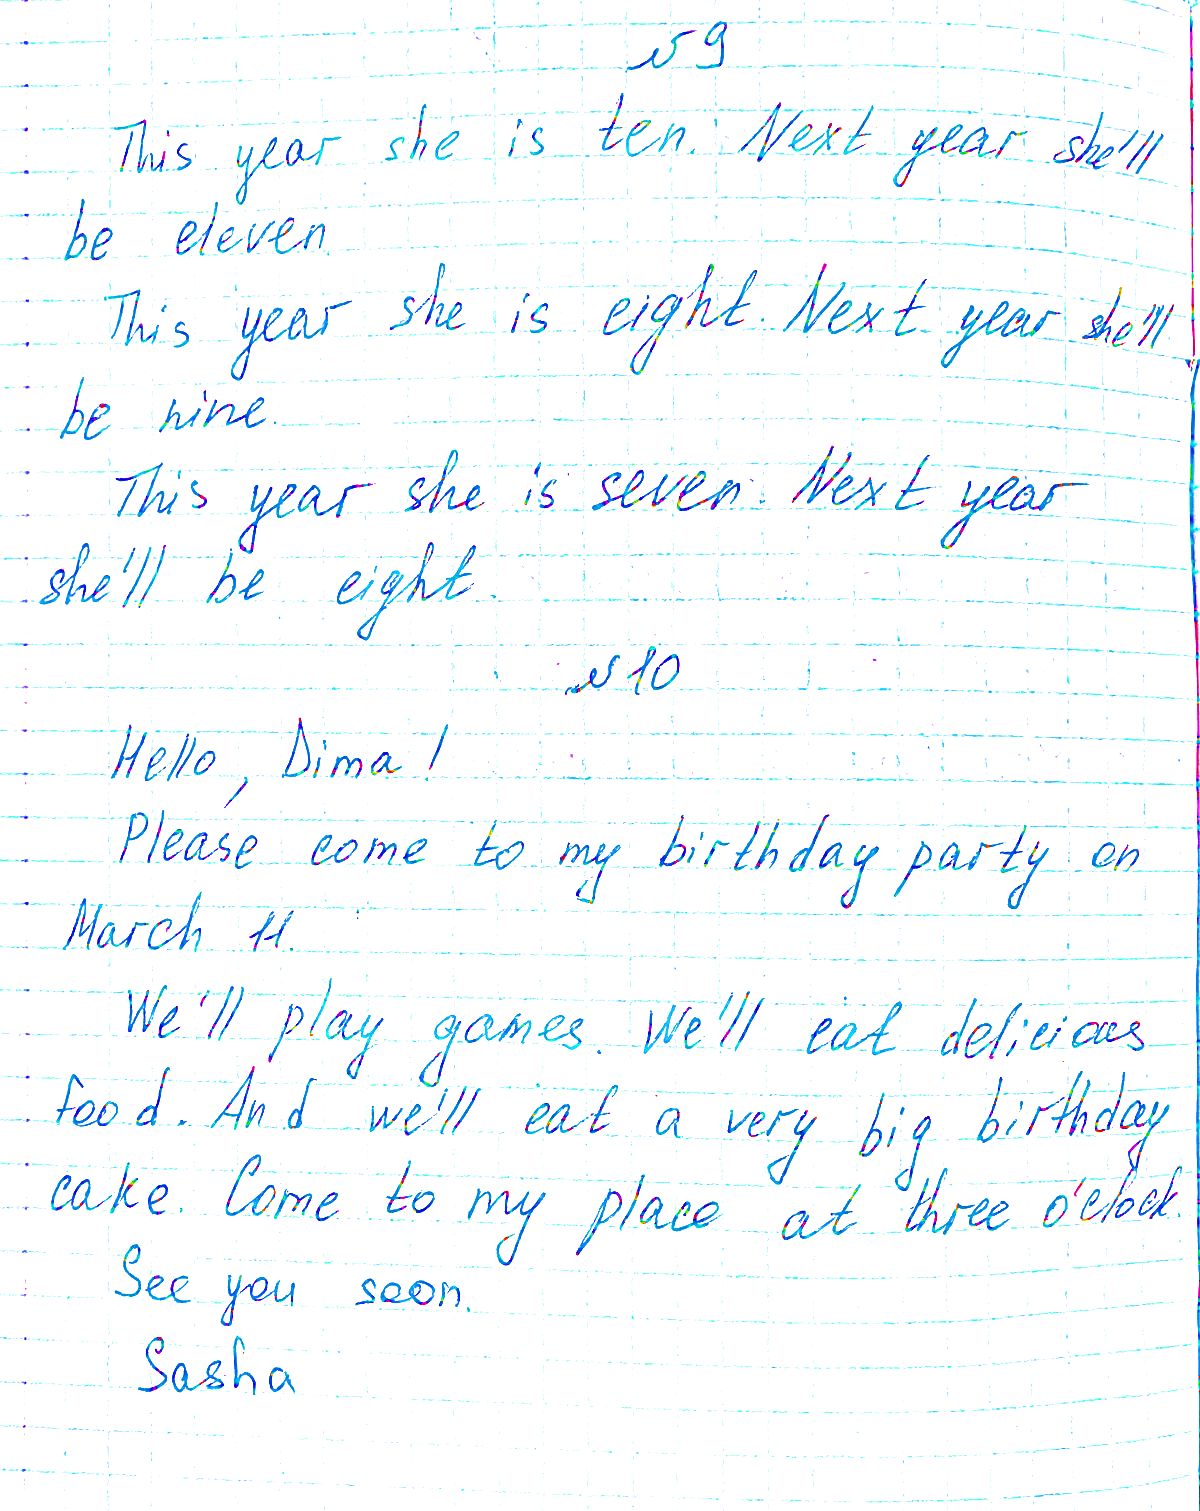 № 9
This year she is ten. Next year she'll
be eleven.
This year she is eight. Next year she'll
be nine.
This year she is seven. Next year
she'll be eight.
№ 10
Hello, Dima!
Please come to my birthday party on
March 11.
We'll play games. We'll eat delicious
food. And we'll eat a very big birthday
cake. Come to my place at three o'clock.
See you soon.
Sasha